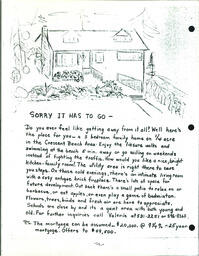 SORRY IT HAS TO GO -
Do you ever feel like getting away from it all? Well here's
the place for you - a 3 bedroom family home on 1/4 acre
in the Crescent Beach Area. Enjoy the leisure walks and
swimming at the beach 2 min. away or go sailing on weekends
instead of fighting the traffic. How would you like a nice, bright
kitchen-family room. The utility area is right there to save
you steps. On those cold evenings, there's an intimate living room
with a cozy antique brick fireplace. There's lots of space for
future development. Out back there's a small patio to relax on or
barbecue, or eat apples, or even play a game of badminton.
Flowers, trees, birds and fresh air are here to appreciate.
Schools are close by and its a great area with both young and
old. For further inquiries call Valerie at 531-
P.S. The mortgage can be assumed - $20,000. @ 9 % - 25 year
mortgage. Offers to